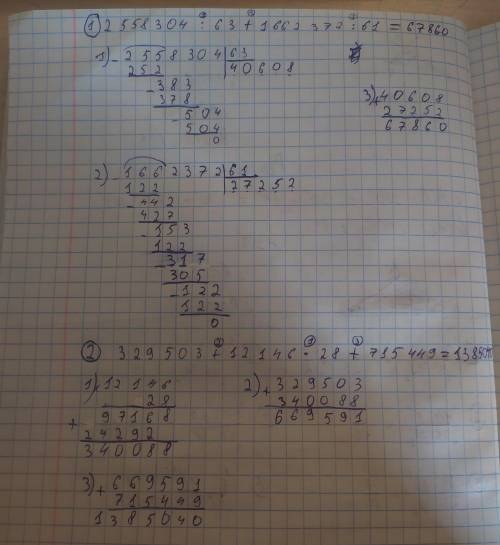 ① 2558304 : 63 + 1662372 : 61 = 67860
1) - 2558304 | 63
252 40608
- 383
378
- 504
504
0
3) + 40608
27252
67860
2) - 1662372 | 61
122 27252
- 442
427
- 153
122
- 317
305
- 122
122
0
② 329503 + 12146 · 28 + 715449 = 1385040
1) 12146
28
+ 97168
24292
340088
2) + 329503
340088
669591
3) + 669591
715449
1385040